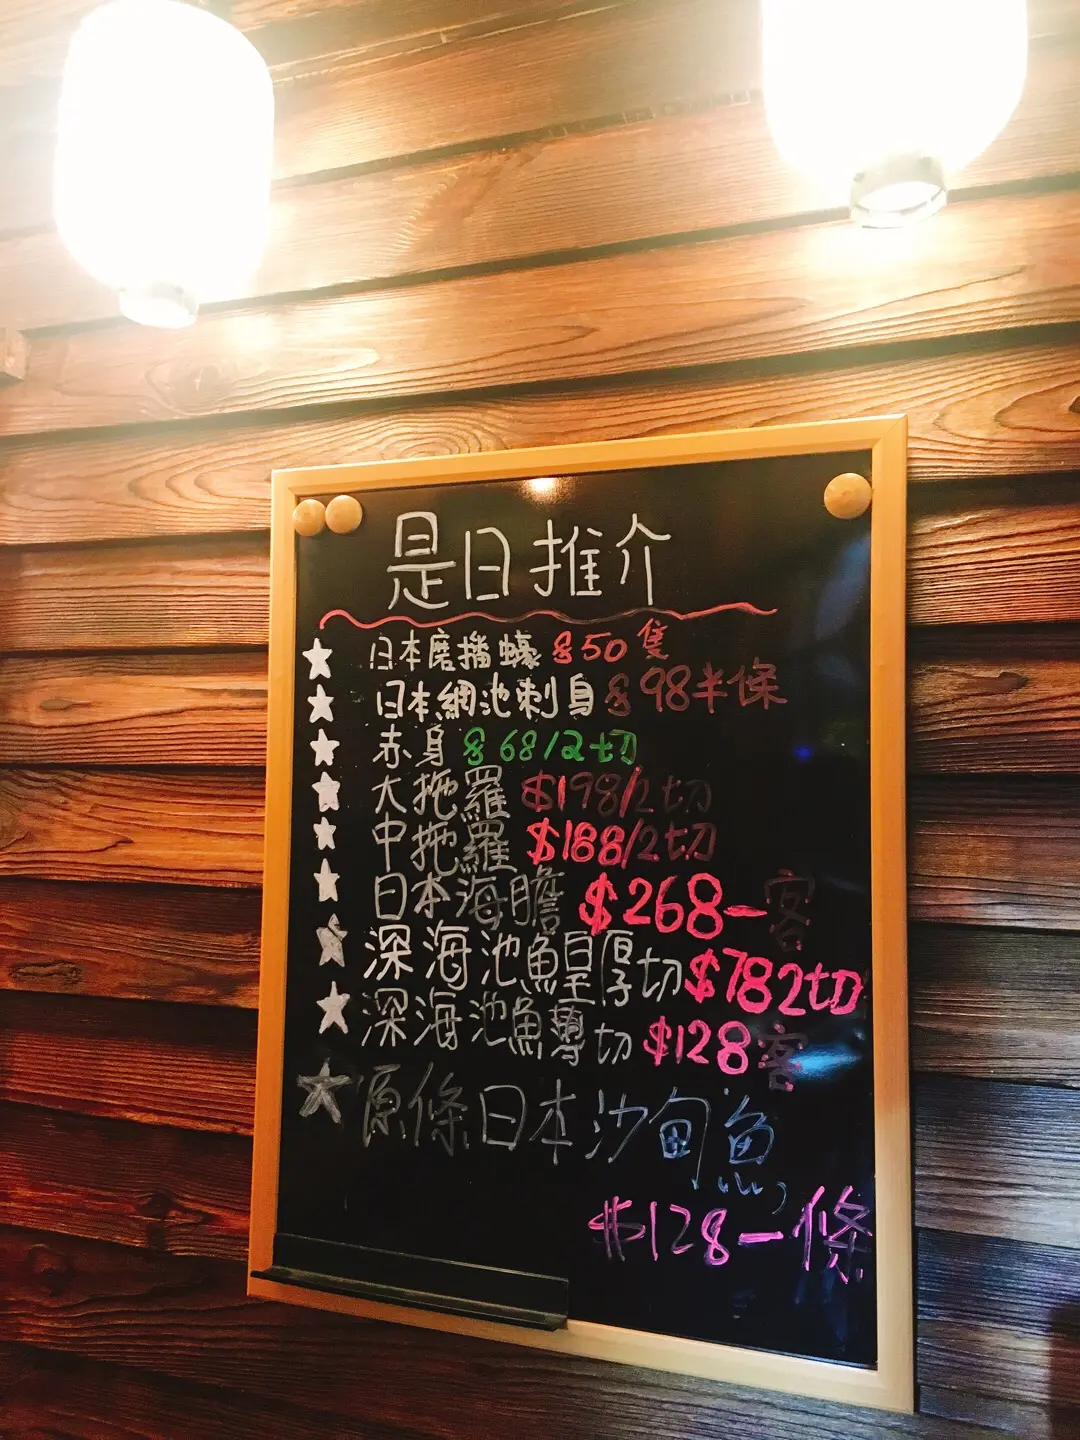 是日推介
日本磨擋蠔 $50 隻
日本網池刺身 $98半條
赤身 $68/2切
大拖羅 $198/2切
中拖羅 $188/2切
日本海膽 $268一客
深海池魚皇厚切$78 2切
深海池魚薄切 $128客
原條日本沙甸魚
$128一條